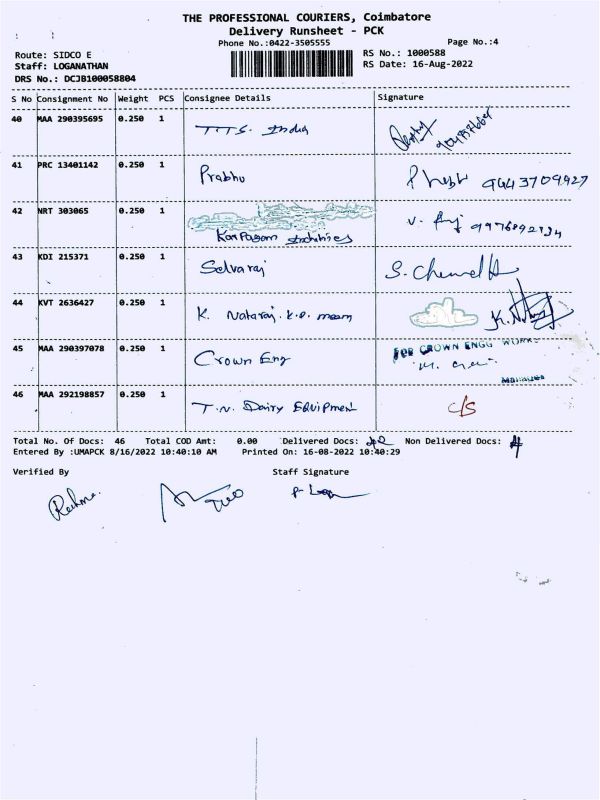 THE PROFESSIONAL COURIERS, Coimbatore
Delivery Runsheet - PCK
Phone No.:0422-3505555 Page No.:4
Route: SIDCO E RS No.: 1000588
Staff: LOGANATHAN RS Date: 16-Aug-2022
DRS No.: DCJB100058804
S No Consignment No Weight PCS Consignee Details Signature
40 MAA 290395695 0.250 1 T.T.S. India
41 PRC 13401142 0.250 1 Prabhu 9443709927
42 NRT 303065 0.250 1 Karpagam
43 KDI 215371 0.250 1 Selvaraj
44 KVT 2636427 0.250 1 K. Nataraj. K.P. mam
45 MAA 290397078 0.250 1 Crown Eng FOR CROWN ENGG WORKS
MANAGER
46 MAA 292198857 0.250 1 T.N. Dairy Equipment C/S
Total No. Of Docs: 46 Total COD Amt: 0.00 Delivered Docs: 42 Non Delivered Docs: 4
Entered By :UMAPCK 8/16/2022 10:40:10 AM Printed On: 16-08-2022 10:40:29
Verified By Staff Signature